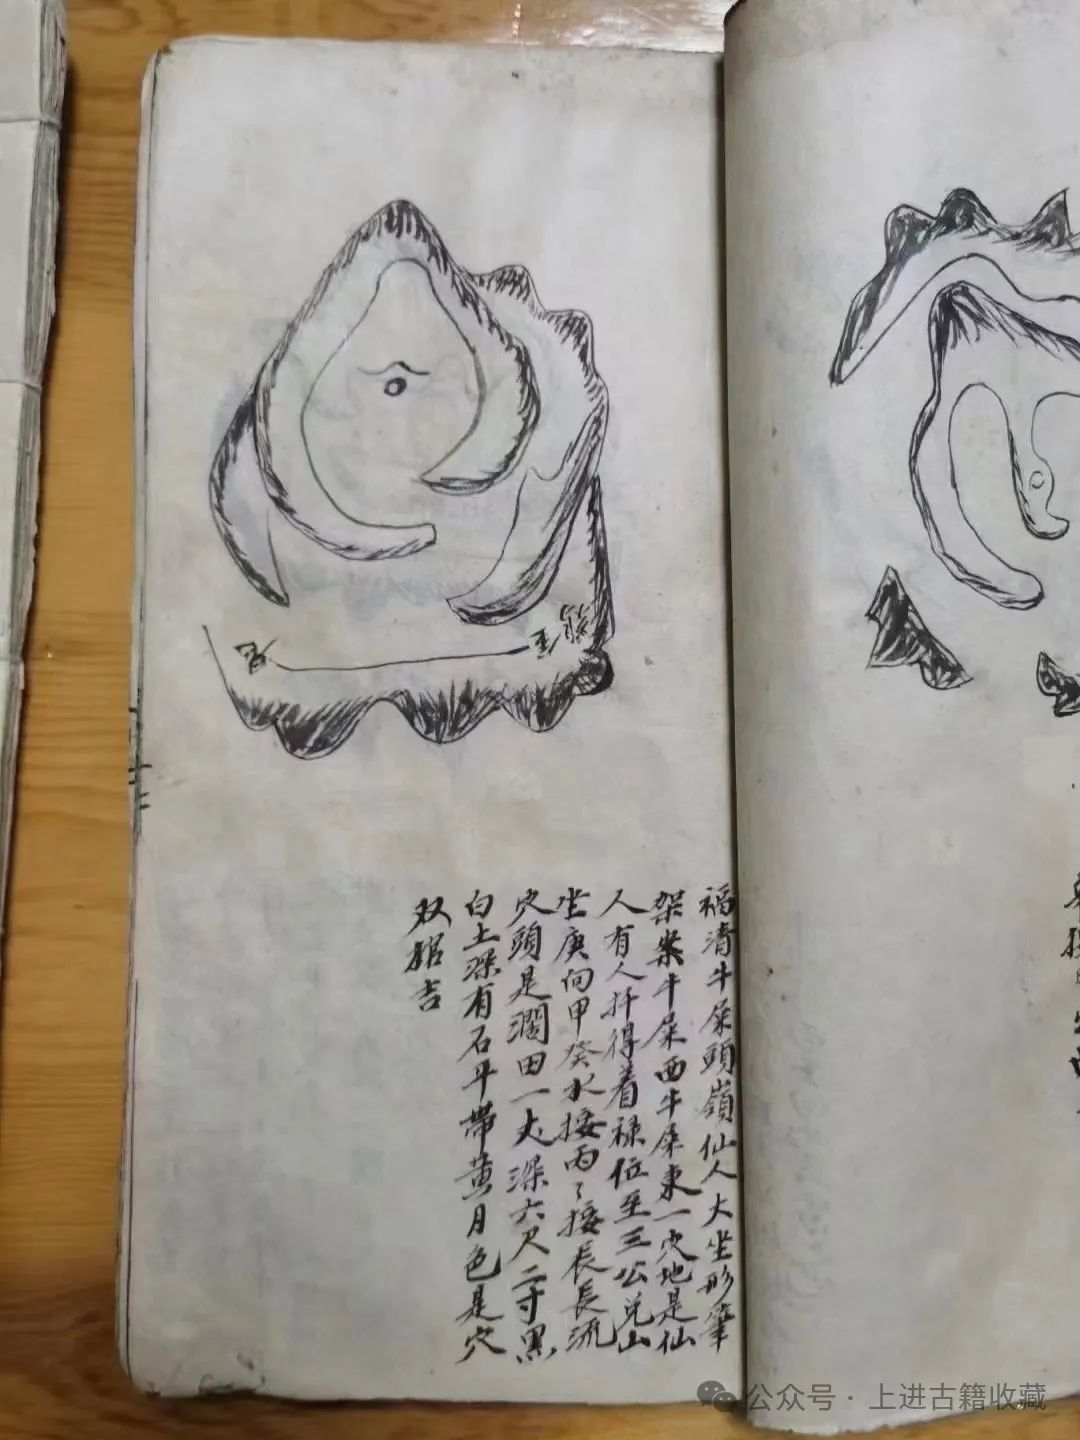 福清牛屎頭嶺仙人大坐形筆
架案牛屎西牛屎東一穴地是仙
人有人扦得着禄位至三公兑山
坐庚向甲癸水接丙々接長長流
穴頭是濶田一丈深六尺二寸黑
白土深有石平帶黄月色是穴
双掘吉
公众号·上进古籍收藏